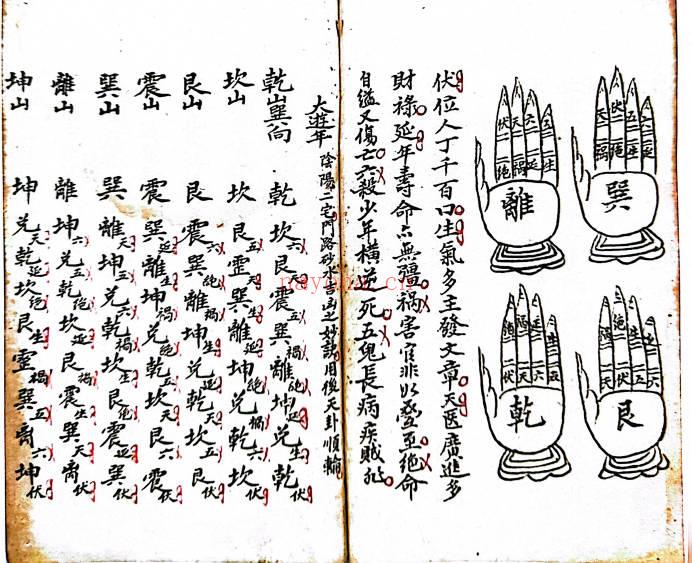 巽
離
艮
乾
伏位人丁千百口生氣多主發文章天医廣進多
財祿延年壽命無疆禍害官非以叠至絕命
自縊又傷亡六殺少年橫逆死五鬼長病疾賊
大遊年 陰陽二宅門路砂水吉凶之妙訣用後天卦順輪
乾山巽向 乾坎六艮天震五巽禍離絕坤延兌生乾伏
坎山 坎艮五震天巽生離延坤絕兌禍乾六坎伏
艮山 艮震六巽絕離禍坤生兌延乾天坎五艮伏
震山 震巽延離生坤禍兌絕乾五坎天艮六震伏
巽山 巽離天坤五兌六乾禍坎生艮絕震延巽伏
離山 離坤六兌五乾絕坎延艮禍震生巽天离伏
坤山 坤兌天乾延坎絕艮生震禍巽五离六坤伏